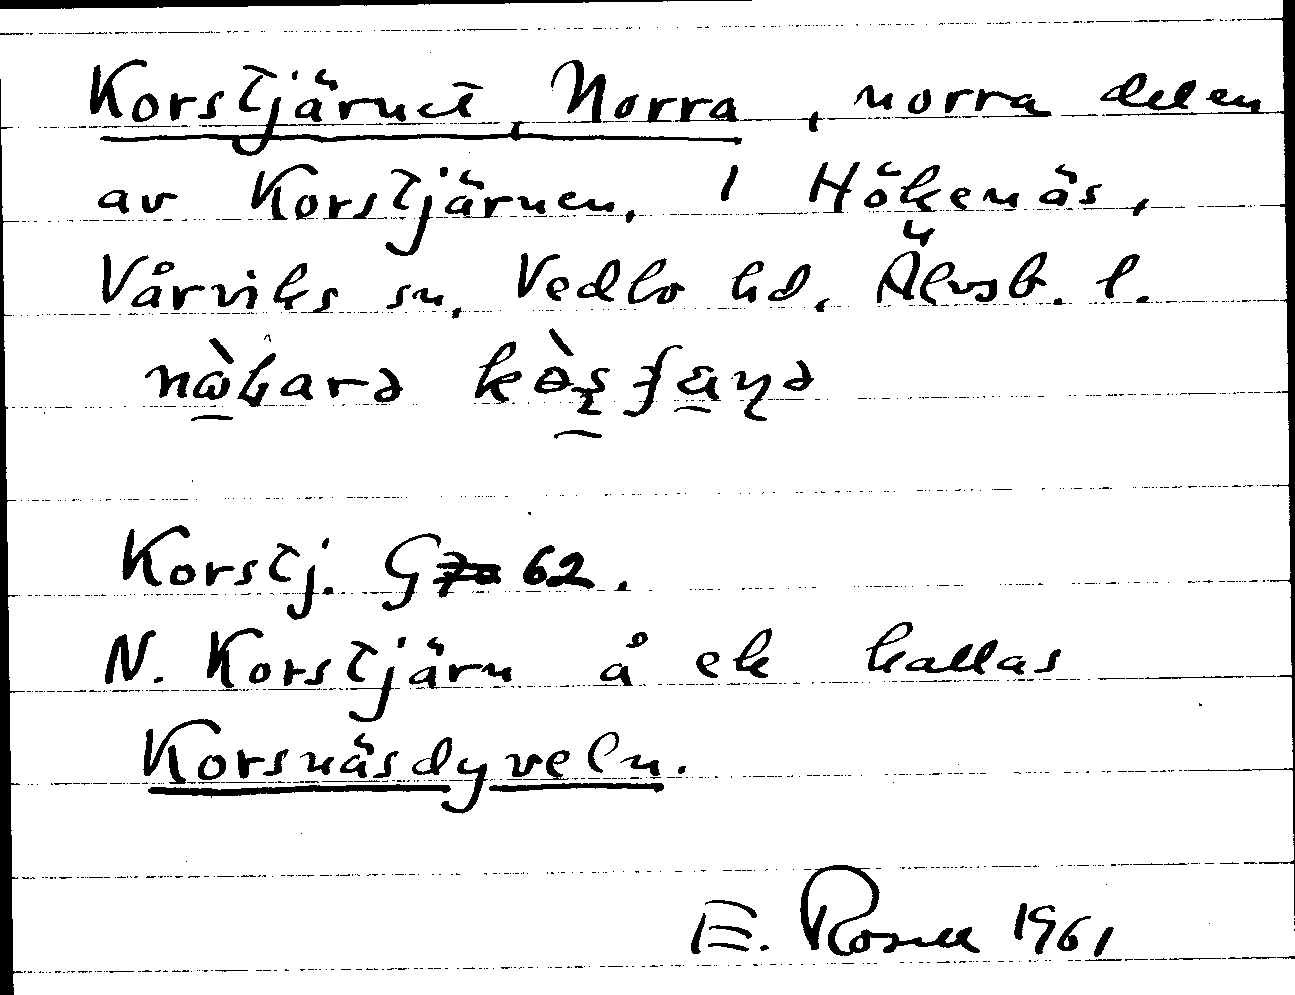 Korstjärnet, Norra, norra delen
av Korstjärnen, i Hökenäs,
Vårviks sn, Vedbo hd, Älvsb. l.

Korstj. G 62.
N. Korstjärn å ek kallas
Korsnäsdyveln.
E. Rosell 1961